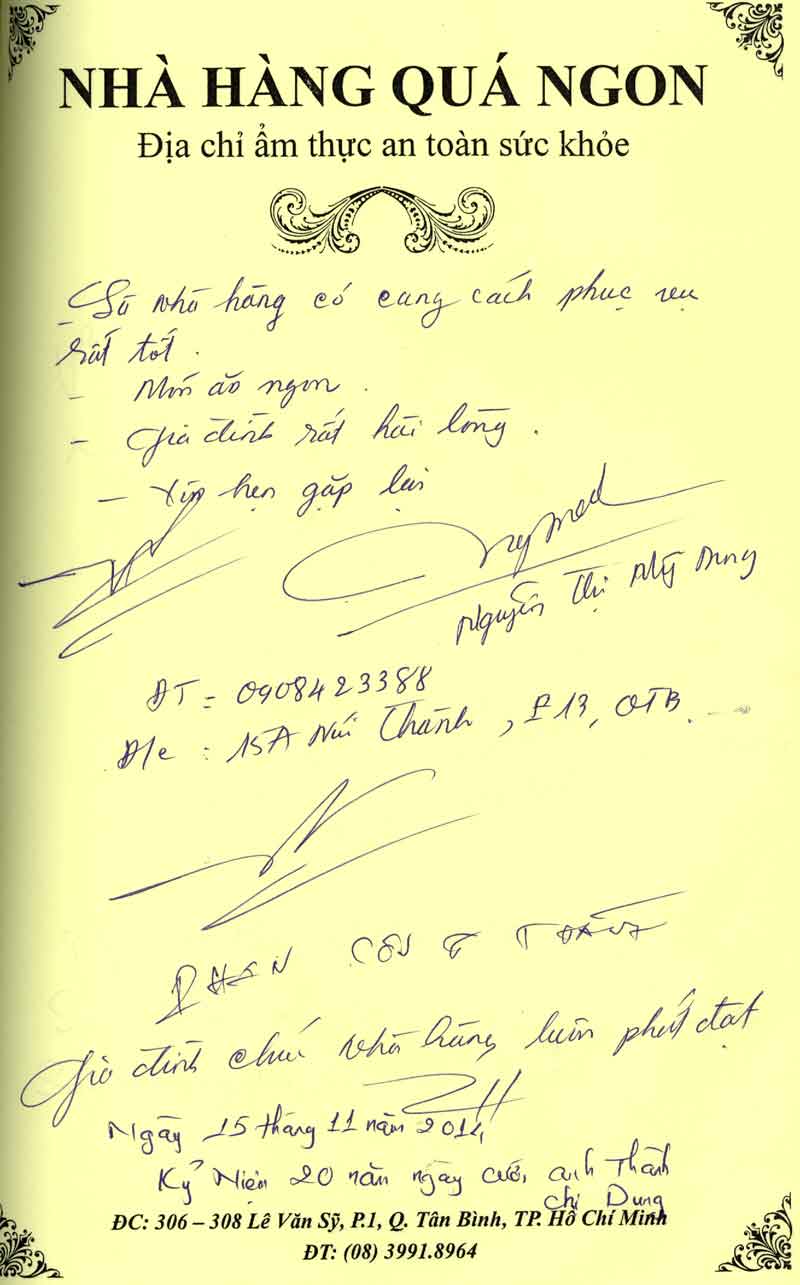 NHÀ HÀNG QUÁ NGON
Địa chỉ ẩm thực an toàn sức khỏe
nhà hàng có cung cách phục vụ
rất tốt.
- Món ăn ngon.
- Gia đình rất hài lòng.
- Xin hẹn gặp lại
Nguyễn Thị Mỹ Dung
ĐT: 0908423388
Đ/c: 15A Núi Thành, P13, QTB.
PHAN CÔNG THÀNH
Gia đình chúc nhà hàng luôn phát đạt
Ngày 15 tháng 11 năm 2014
Kỷ Niệm 20 năm ngày cưới anh Thành
chị Dung
ĐC: 306 – 308 Lê Văn Sỹ, P.1, Q. Tân Bình, TP. Hồ Chí Minh
ĐT: (08) 3991.8964